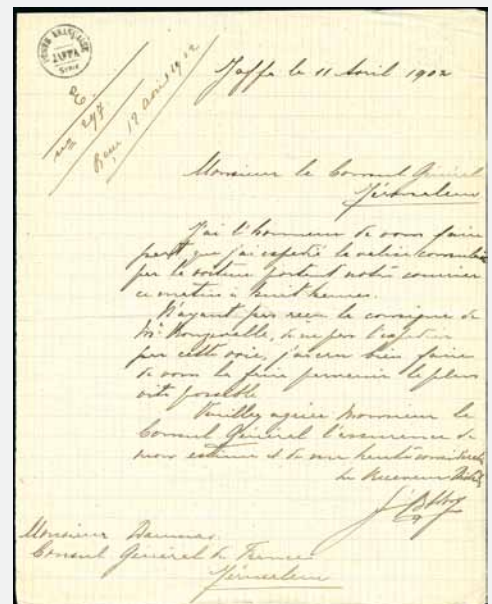 POSTE FRANÇAISE
JAFFA
Syrie
E.
no 297
Reçu 12 avril 1902
Jaffa le 11 Avril 1902
Monsieur le Consul Général
Jérusalem
J'ai l'honneur de vous faire
part, que j'ai expedié la valise consulaire
par la voiture portant notre courrier
ce matin à huit heures.
N'ayant pas recu la consigne de
Mr de ne pas l'expedier
par cette voie, j'ai cru bien faire
de vous la faire parvenir le plus
vite possible
Veuillez agréer Monsieur le
Consul Général l'assurance de
mon estime et de ma haute considération
le Receveur
Monsieur
Consul Général de France
Jérusalem